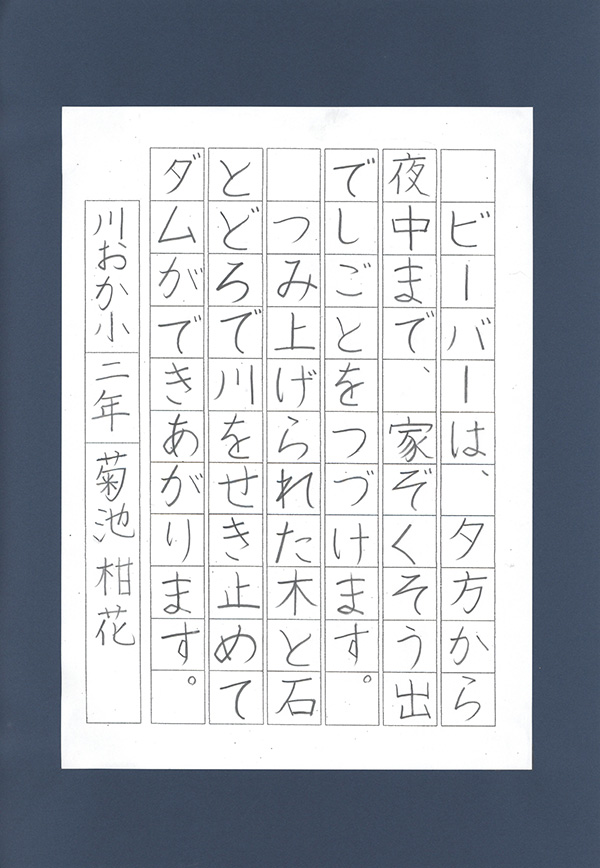 ビーバーは、夕方から
夜中まで、家ぞくそう出
でしごとをつづけます。
　つみ上げられた木と石
とどろで川をせき止めて
ダムができあがります。
川おか小 二年 菊池柑花